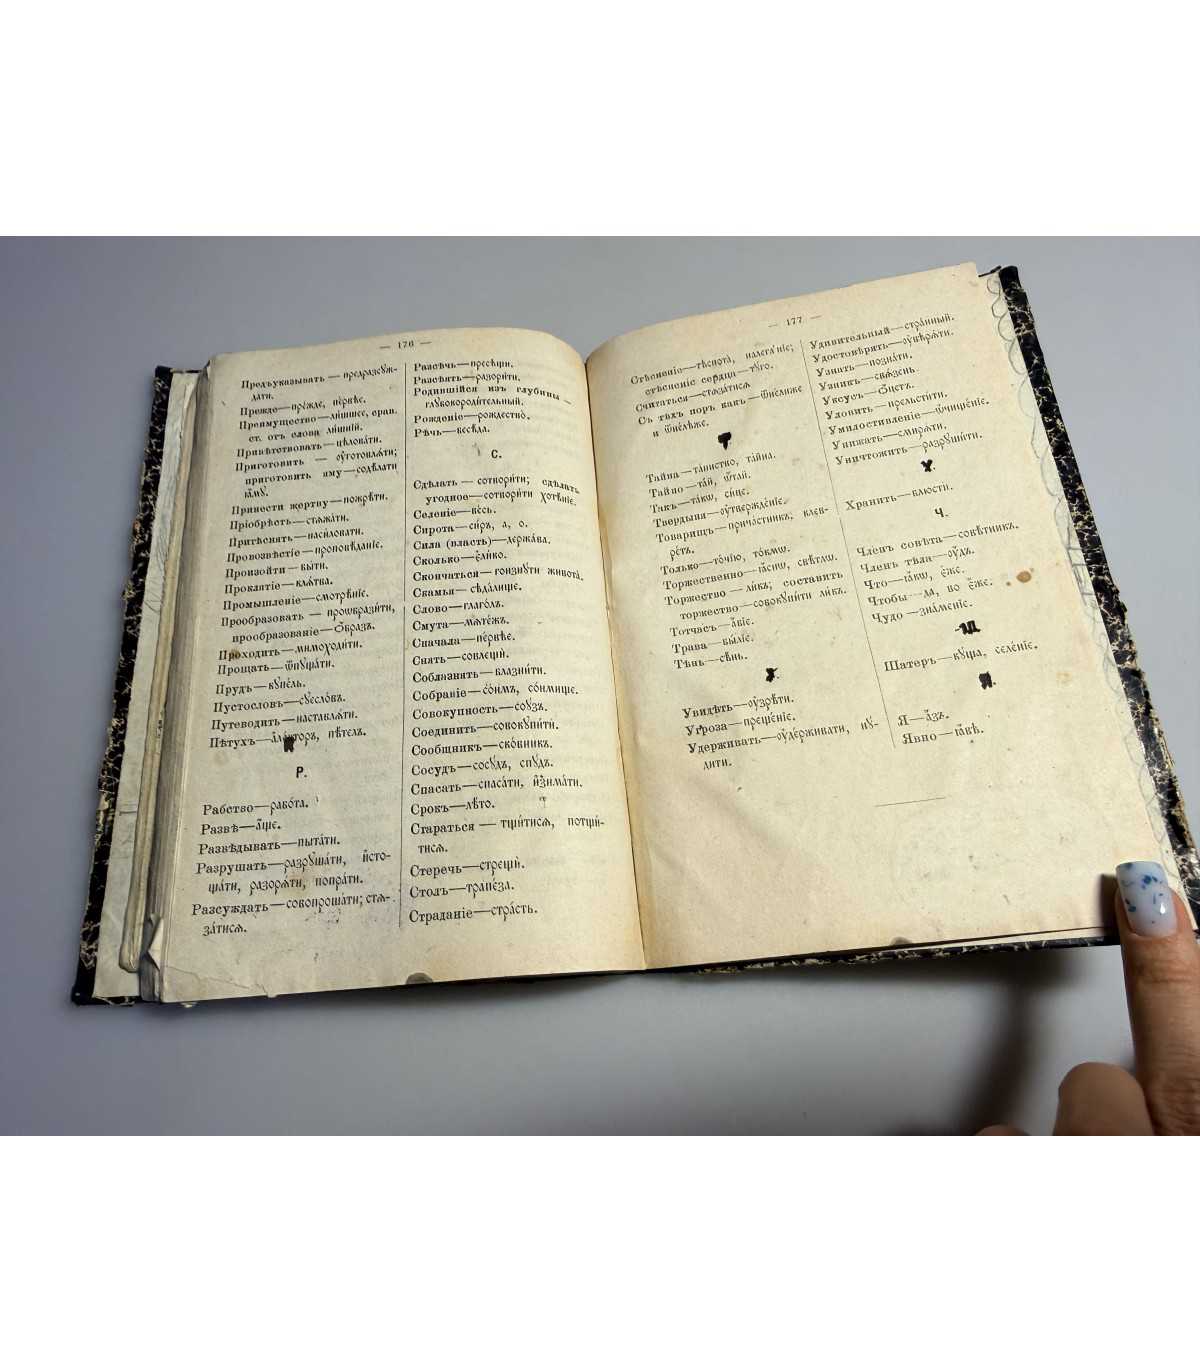 — 176 —
Предъуказывать — предразсуж-
дати.
Прежде—прежде, пе́рвѣе.
Преимущество—ли́шшее, срав.
ст. отъ слова ли́шній.
Привѣтствовать—цѣлова́ти.
Приготовить — оуготовлѧ́ти;
приготовить яму—содѣлати
ꙗ́мꙋ.
Принести жертву—пожре́ти.
Пріобрѣсть—стѧжа́ти.
Притѣснять—наси́ловати.
Провозвѣстіе—проповѣ́даніе.
Произойти—бы́ти.
Проклятіе—клѧ́тва.
Промышленіе—смотрѣ́ніе.
Преобразовать — проѡбрази́ти,
прообразованіе—ѻ́бразъ.
Проходить—мимоходи́ти.
Прощать—ѿпꙋща́ти.
Прудъ—кꙋпе́ль.
Пустословъ—сꙋесло́въ.
Путеводить—наставлѧ́ти.
Пѣтухъ—але́кторъ, пѣ́телъ.
Р.
Рабство—рабо́та.
Развѣ—а҆́ще.
Развѣдывать—пыта́ти.
Разрушать—разрꙋша́ти, и҆сто-
ща́ти, разорѧ́ти, попра́ти.
Разсуждать—совопроша́ти; стѧ-
за́тисѧ.
Разсѣчь—пресѣщи́.
Разсѣять—разори́ти.
Родившійся изъ глубины —
глꙋбокороди́тельный.
Рожденіе—рождество́.
Рѣчь—бесѣ́да.
С.
Сдѣлать—сотвори́ти; сдѣлать
угодное—сотвори́ти хотѣ́ніе.
Селеніе—ве́сь.
Сирота—си́ръ, а, о.
Сила (власть)—держа́ва.
Сколько—е҆ли́ко.
Скончаться—гонзнꙋти живота́.
Скамья—сѣда́лище.
Слово—глаго́лъ.
Смута—мѧте́жъ.
Сначала—пе́рвѣе.
Снять—совлещи́.
Соблазнять—влазни́ти.
Собраніе—со́нмъ, со́нмище.
Совокупность—сою́зъ.
Соединить—совокꙋпи́ти.
Сообщникъ—ско́вникъ.
Сосудъ—сосꙋ́дъ, спꙋ́дъ.
Спасать—спаса́ти, и҆зима́ти.
Срокъ—лѣ́то.
Стараться — тщи́тисѧ, потщи́-
тисѧ.
Стеречь—стрещи́.
Столъ—трапе́за.
Страданіе—стра́сть.
— 177 —
Стѣсненіе—тѣснота̀, налега́ніе;
стѣсненіе сердца—тꙋ́го.
Считаться—стѧза́тисѧ
Съ тѣхъ поръ какъ—ѿне́лиже
и ѿне́лѣже.
Т.
Тайна—та́инство, та́йна.
Тайно—та́й, ѿта́й.
Такъ—та́кѡ, си́це.
Твердыня—оутвержде́ніе.
Товарищъ—прича́стникъ, клев-
ре́тъ.
Только—то́чію, то́кмѡ.
Торжественно—ꙗ́снѡ, свѣ́тлѡ.
Торжество — ли́къ; составить
торжество—совокꙋпи́ти ли́къ.
Тотчасъ—а҆́біе.
Трава—бы́ліе.
Тѣнь—сѣ́нь.
У.
Увидѣть—оузрѣ́ти.
Угроза—преще́ніе.
Удерживать—оуде́рживати, нꙋ́-
дити.
Удивительный—стра́нный.
Удостовѣрять—оувѣрѧ́ти.
Узнать—позна́ти.
Узникъ—свѧ́зень.
Уксусъ—ѻ́цетъ.
Уловить—прельсти́ти.
Умилостивленіе—ѡчище́ніе.
Унижать—смирѧ́ти.
Уничтожить—разрꙋши́ти.
Х.
Хранить—блюсти́.
Ч.
Членъ совѣта—совѣ́тникъ.
Членъ тѣла—оу́дъ.
Что—ꙗ́кѡ, є҆́же.
Чтобы—да, во є҆́же.
Чудо—зна́меніе.
Ш.
Шатеръ—кꙋ́ща, селе́ніе.
Я.
Я—а҆́зъ.
Явно—ꙗ́вѣ.